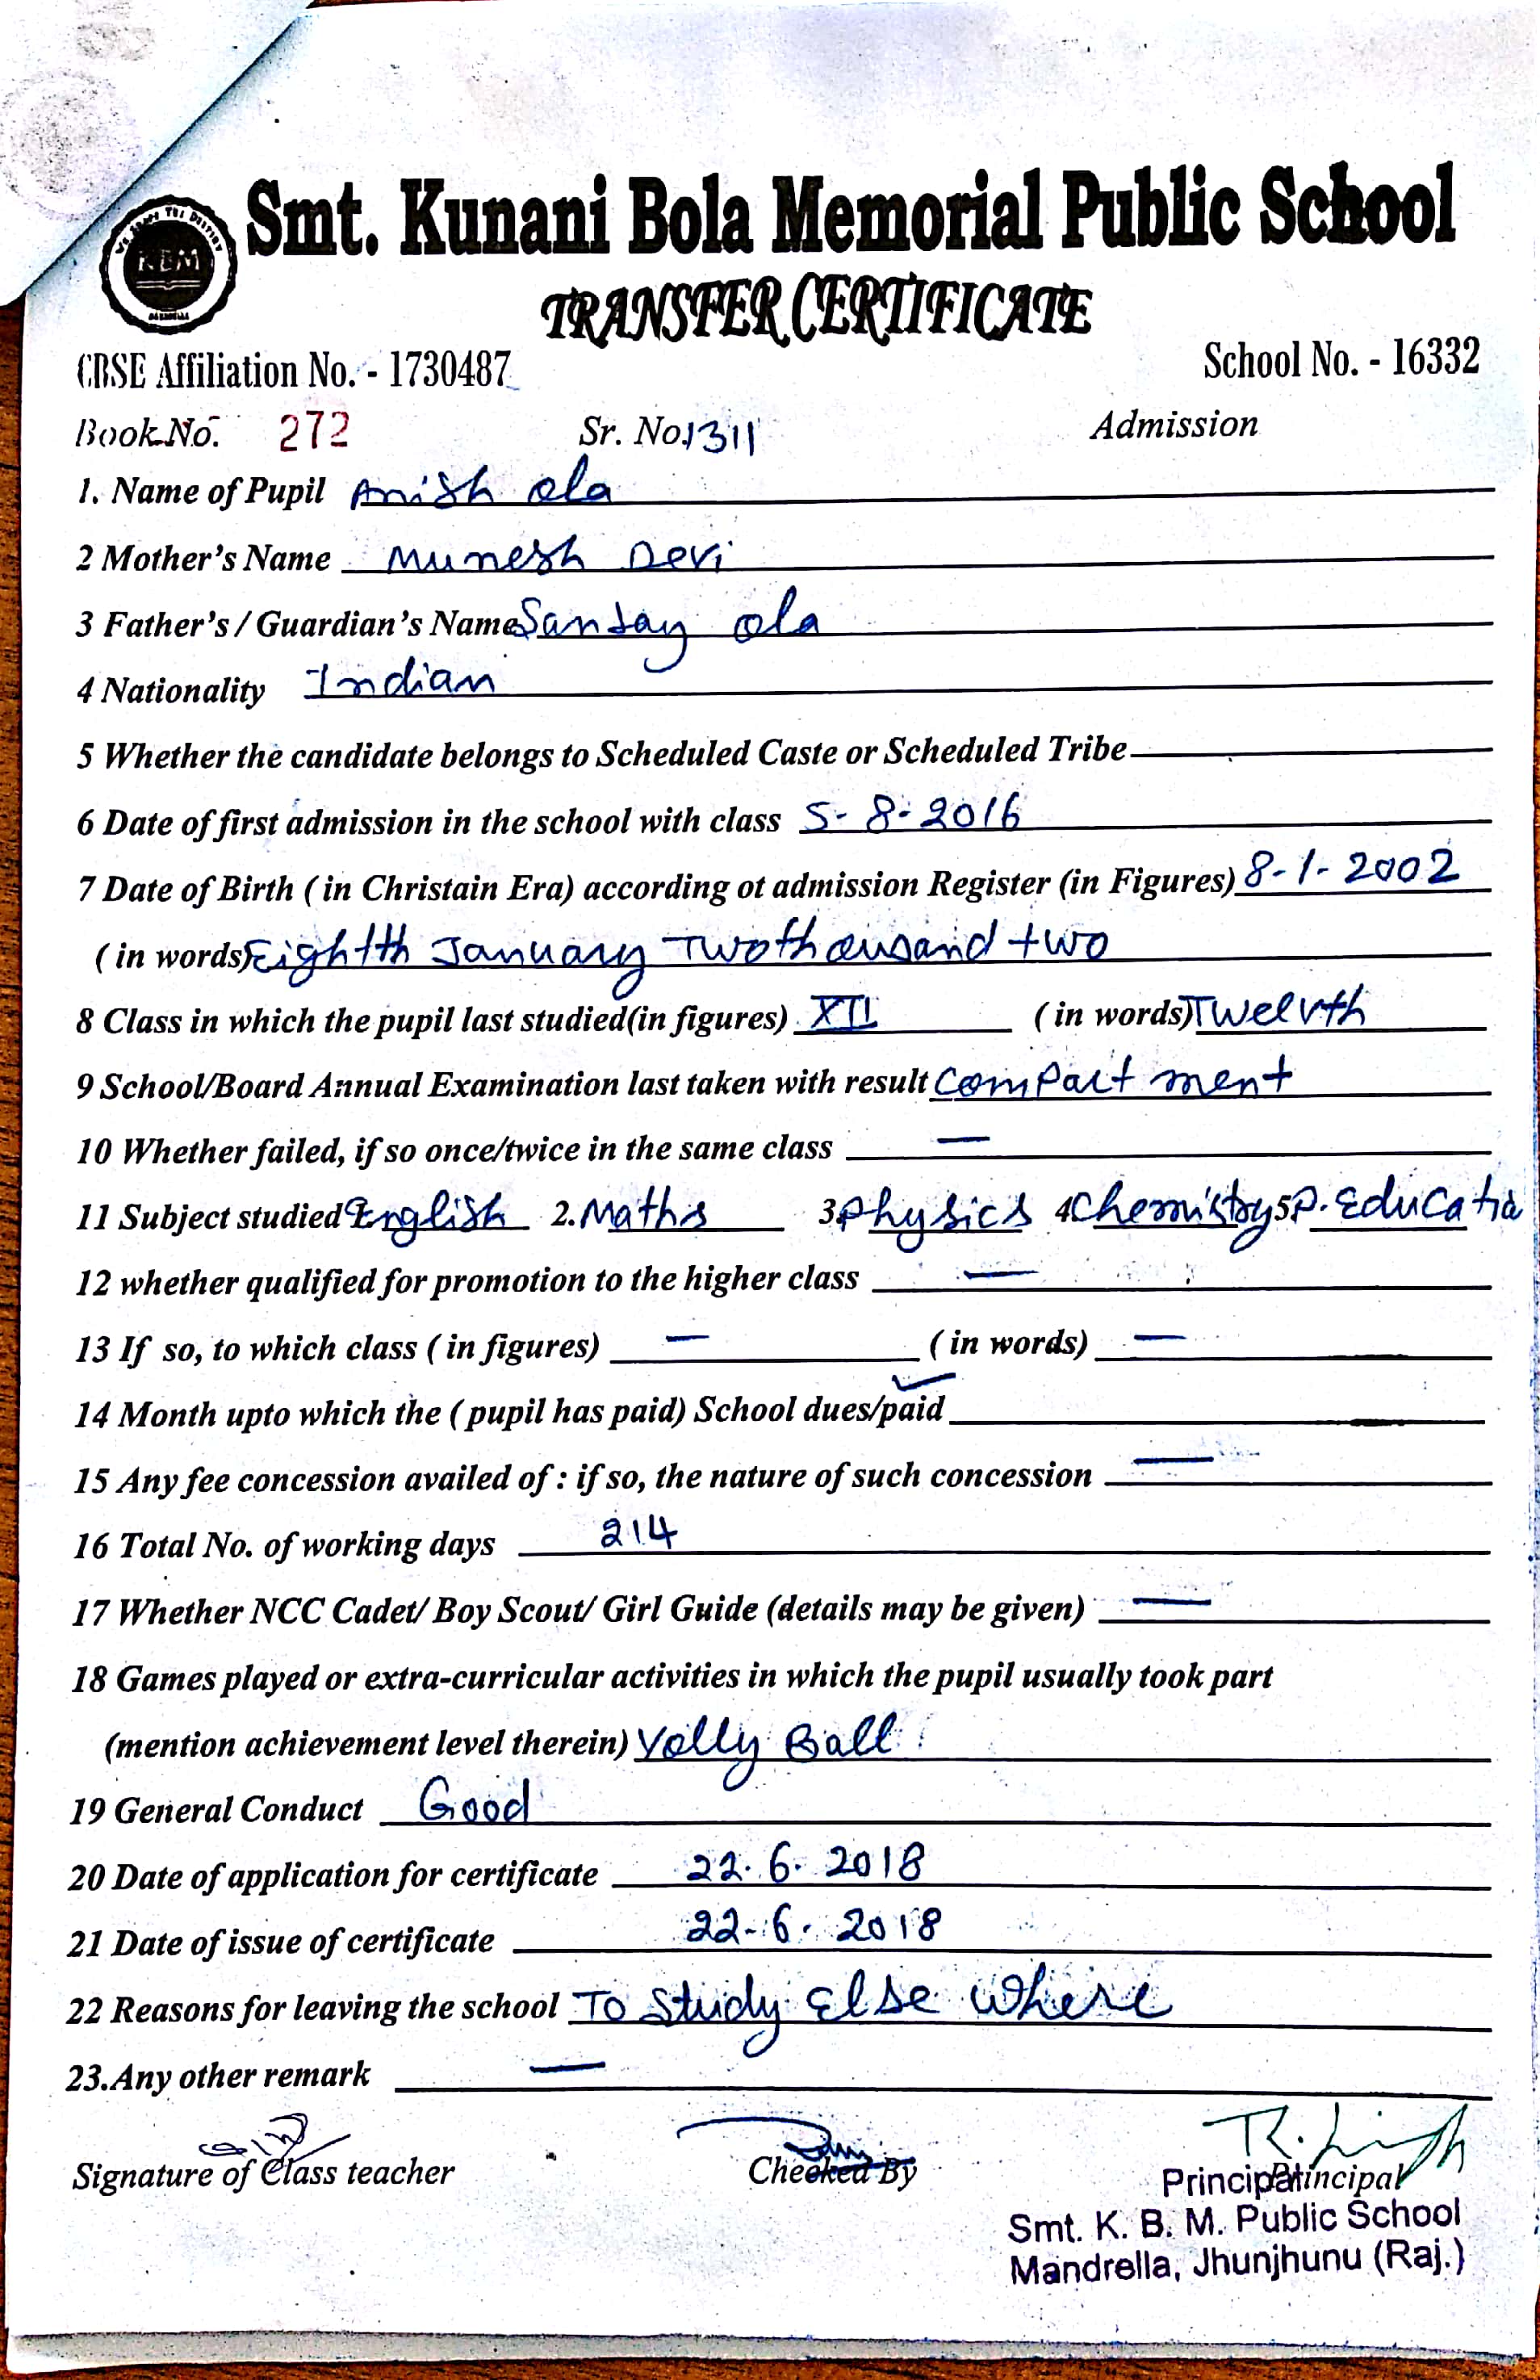 Smt. Kunani Bola Memorial Public School
KBM
TRANSFER CERTIFICATE
CBSE Affiliation No. - 1730487
School No. - 16332
Book No. 272 Sr. No. 1311 Admission
1. Name of Pupil Anish Ola
2 Mother's Name Munesh Devi
3 Father's / Guardian's Name Sanjay Ola
4 Nationality Indian
5 Whether the candidate belongs to Scheduled Caste or Scheduled Tribe
6 Date of first admission in the school with class 5-8-2016
7 Date of Birth ( in Christain Era) according ot admission Register (in Figures) 8-1-2002
( in words) Eightth January Twothousand two
8 Class in which the pupil last studied(in figures) XII ( in words) Twelvth
9 School/Board Annual Examination last taken with result Compartment
10 Whether failed, if so once/twice in the same class —
11 Subject studied English 2. Maths 3. Physics 4 Chemistry 5 P. Educatio
12 whether qualified for promotion to the higher class —
13 If so, to which class ( in figures) — ( in words) —
14 Month upto which the ( pupil has paid) School dues/paid
15 Any fee concession availed of : if so, the nature of such concession —
16 Total No. of working days 214
17 Whether NCC Cadet/ Boy Scout/ Girl Guide (details may be given) —
18 Games played or extra-curricular activities in which the pupil usually took part
(mention achievement level therein) Volly Ball
19 General Conduct Good
20 Date of application for certificate 22.6.2018
21 Date of issue of certificate 22-6-2018
22 Reasons for leaving the school To Study Else where
23. Any other remark —
Signature of Class teacher Checked By Principal
Principal
Smt. K. B. M. Public School
Mandrella, Jhunjhunu (Raj.)